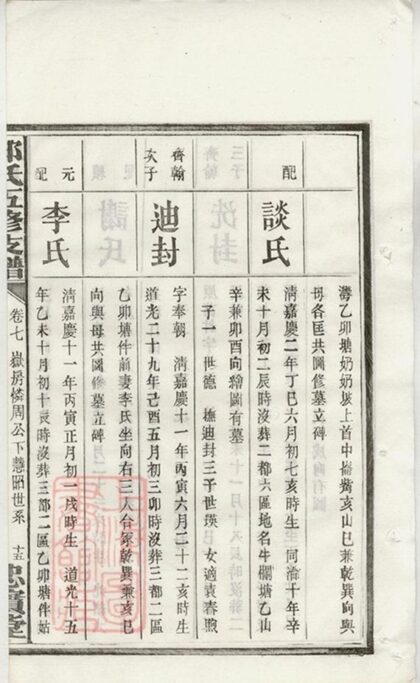 灣乙卯塘奶奶坡上首中掄觜亥山巳兼乾巽向與
母各匡共圖修墓立碑
配
談氏
清嘉慶二年丁巳六月初七亥時生 同治十年辛
未十月初二辰時沒葬二都六區地名牛欄塘乙山
辛兼卯酉向繪圖有墓
子一字世德 撫迪封三子世瑛巳 女適袁春煦
齊翰
次子
迪封
字奉朝 清嘉慶十一年丙寅六月二十二亥時生
道光二十九年己酉五月初三卯時沒葬三都二區
乙卯塘件前妻李氏坐向右三人合冢乾巽兼亥巳
向與母共圖修墓立碑
元
配
李氏
清嘉慶十一年丙寅正月初一戌時生 道光十五
年乙未十月初十辰時沒葬三都二區乙卯塘伴姑
氏五修支譜
卷七 嶽房憐周公下慧昭世系
十五
忠實堂